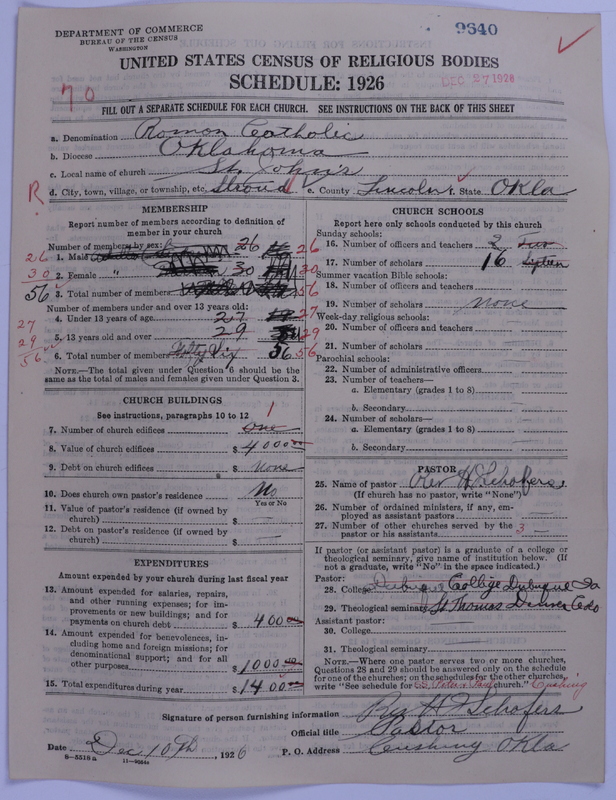 DEPARTMENT OF COMMERCE
BUREAU OF THE CENSUS
WASHINGTON
9640
UNITED STATES CENSUS OF RELIGIOUS BODIES
SCHEDULE: 1926
DEC 27 1926
70
FILL OUT A SEPARATE SCHEDULE FOR EACH CHURCH. SEE INSTRUCTIONS ON THE BACK OF THIS SHEET
a. Denomination Roman Catholic
b. Diocese Oklahoma
c. Local name of church St. John's
R
d. City, town, village, or township, etc. Stroud e. County Lincoln f. State Okla
MEMBERSHIP
Report number of members according to definition of
member in your church
Number of members by sex:
1. Male 26 26
2. Female " 30 30
3. Total number of members 56
26
30
56
Number of members under and over 13 years old:
4. Under 13 years of age 27 27
5. 13 years old and over 29 29
6. Total number of members Fifty Six 56 56
27
29
56
NOTE.—The total given under Question 6 should be the
same as the total of males and females given under Question 3.
CHURCH BUILDINGS
See instructions, paragraphs 10 to 12
7. Number of church edifices one 1
8. Value of church edifices $ 4000.00
9. Debt on church edifices $ None
10. Does church own pastor's residence No
Yes or No
11. Value of pastor's residence (if owned by
church) $
12. Debt on pastor's residence (if owned by
church) $
EXPENDITURES
Amount expended by your church during last fiscal year
13. Amount expended for salaries, repairs,
and other running expenses; for im-
provements or new buildings; and for
payments on church debt $ 400.00
14. Amount expended for benevolences, in-
cluding home and foreign missions; for
denominational support; and for all
other purposes $ 1000.00
15. Total expenditures during year $ 1400
CHURCH SCHOOLS
Report here only schools conducted by this church
Sunday schools:
16. Number of officers and teachers 2
17. Number of scholars 16
Summer vacation Bible schools:
18. Number of officers and teachers
19. Number of scholars none
Week-day religious schools:
20. Number of officers and teachers
21. Number of scholars
Parochial schools:
22. Number of administrative officers
23. Number of teachers—
a. Elementary (grades 1 to 8)
b. Secondary
24. Number of scholars—
a. Elementary (grades 1 to 8)
b. Secondary
PASTOR
25. Name of pastor Rev H Schofers
(If church has no pastor, write "None")
26. Number of ordained ministers, if any, em-
ployed as assistant pastors
27. Number of other churches served by the 3
pastor or his assistants
If pastor (or assistant pastor) is a graduate of a college or
theological seminary, give name of institution below. (If
not a graduate, write "No" in the space indicated.)
Pastor:
28. College Dubuque College Dubuque Ia
29. Theological seminary St Thomas Denver Colo
Assistant pastor:
30. College
31. Theological seminary
NOTE.—Where one pastor serves two or more churches,
Questions 28 and 29 should be answered only on the schedule
for one of the churches; on the schedules for the other churches,
write "See schedule for SS. Peter & Paul church." Cushing
Signature of person furnishing information Rev H Schofers
Official title Pastor
Date Dec 10th, 1926 P. O. Address Cushing Okla
8-5518 a